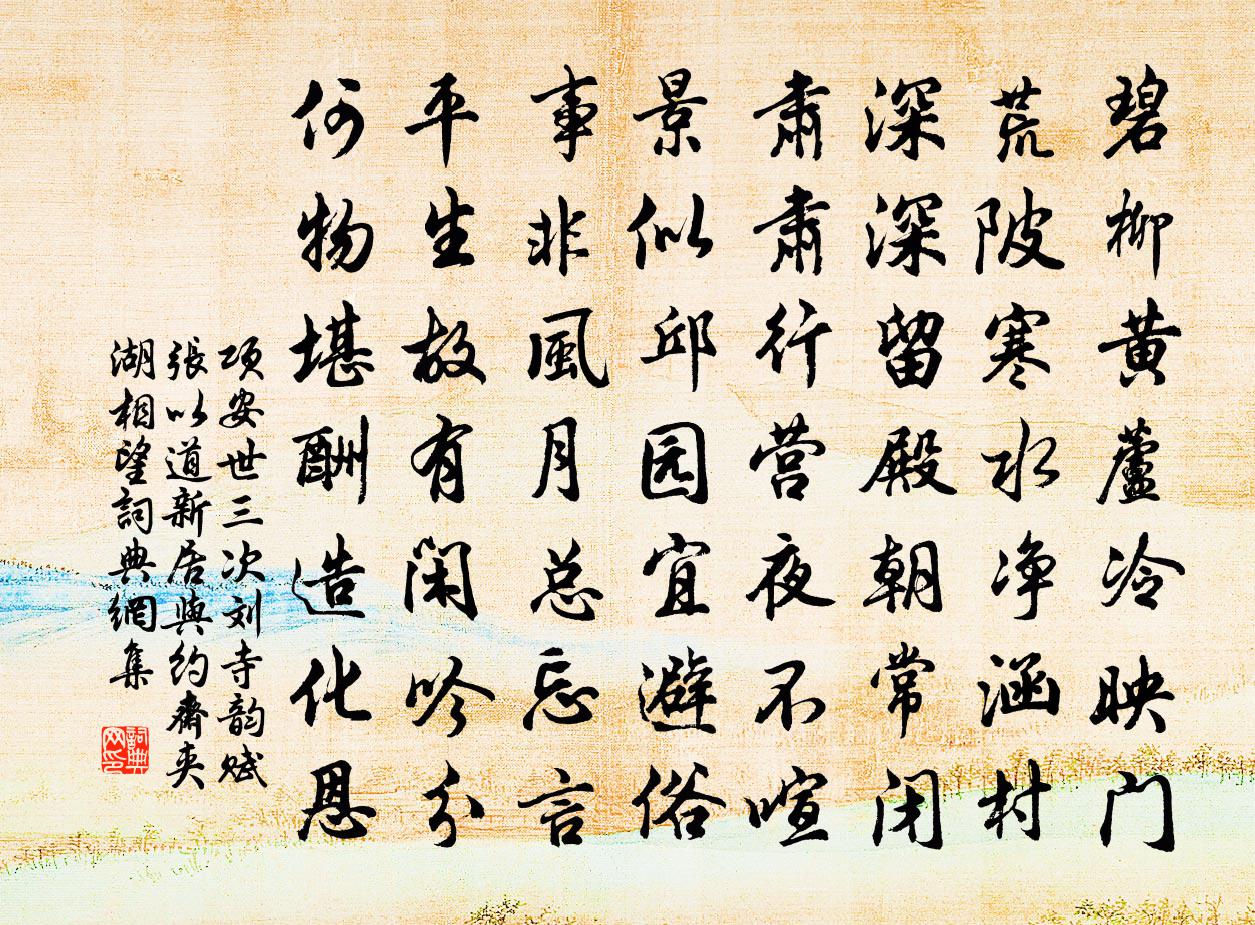 碧柳黄蘆冷映门
荒陂寒水净涵村
深深留殿朝常闭
肃肃行营夜不喧
景似邱园宜避俗
事非風月总忘言
平生故有闲吟分
何物堪酬造化恩
项安世三次刘寺韵赋
張以道新居與约齋夾
湖相望詞典網集
詞典网印